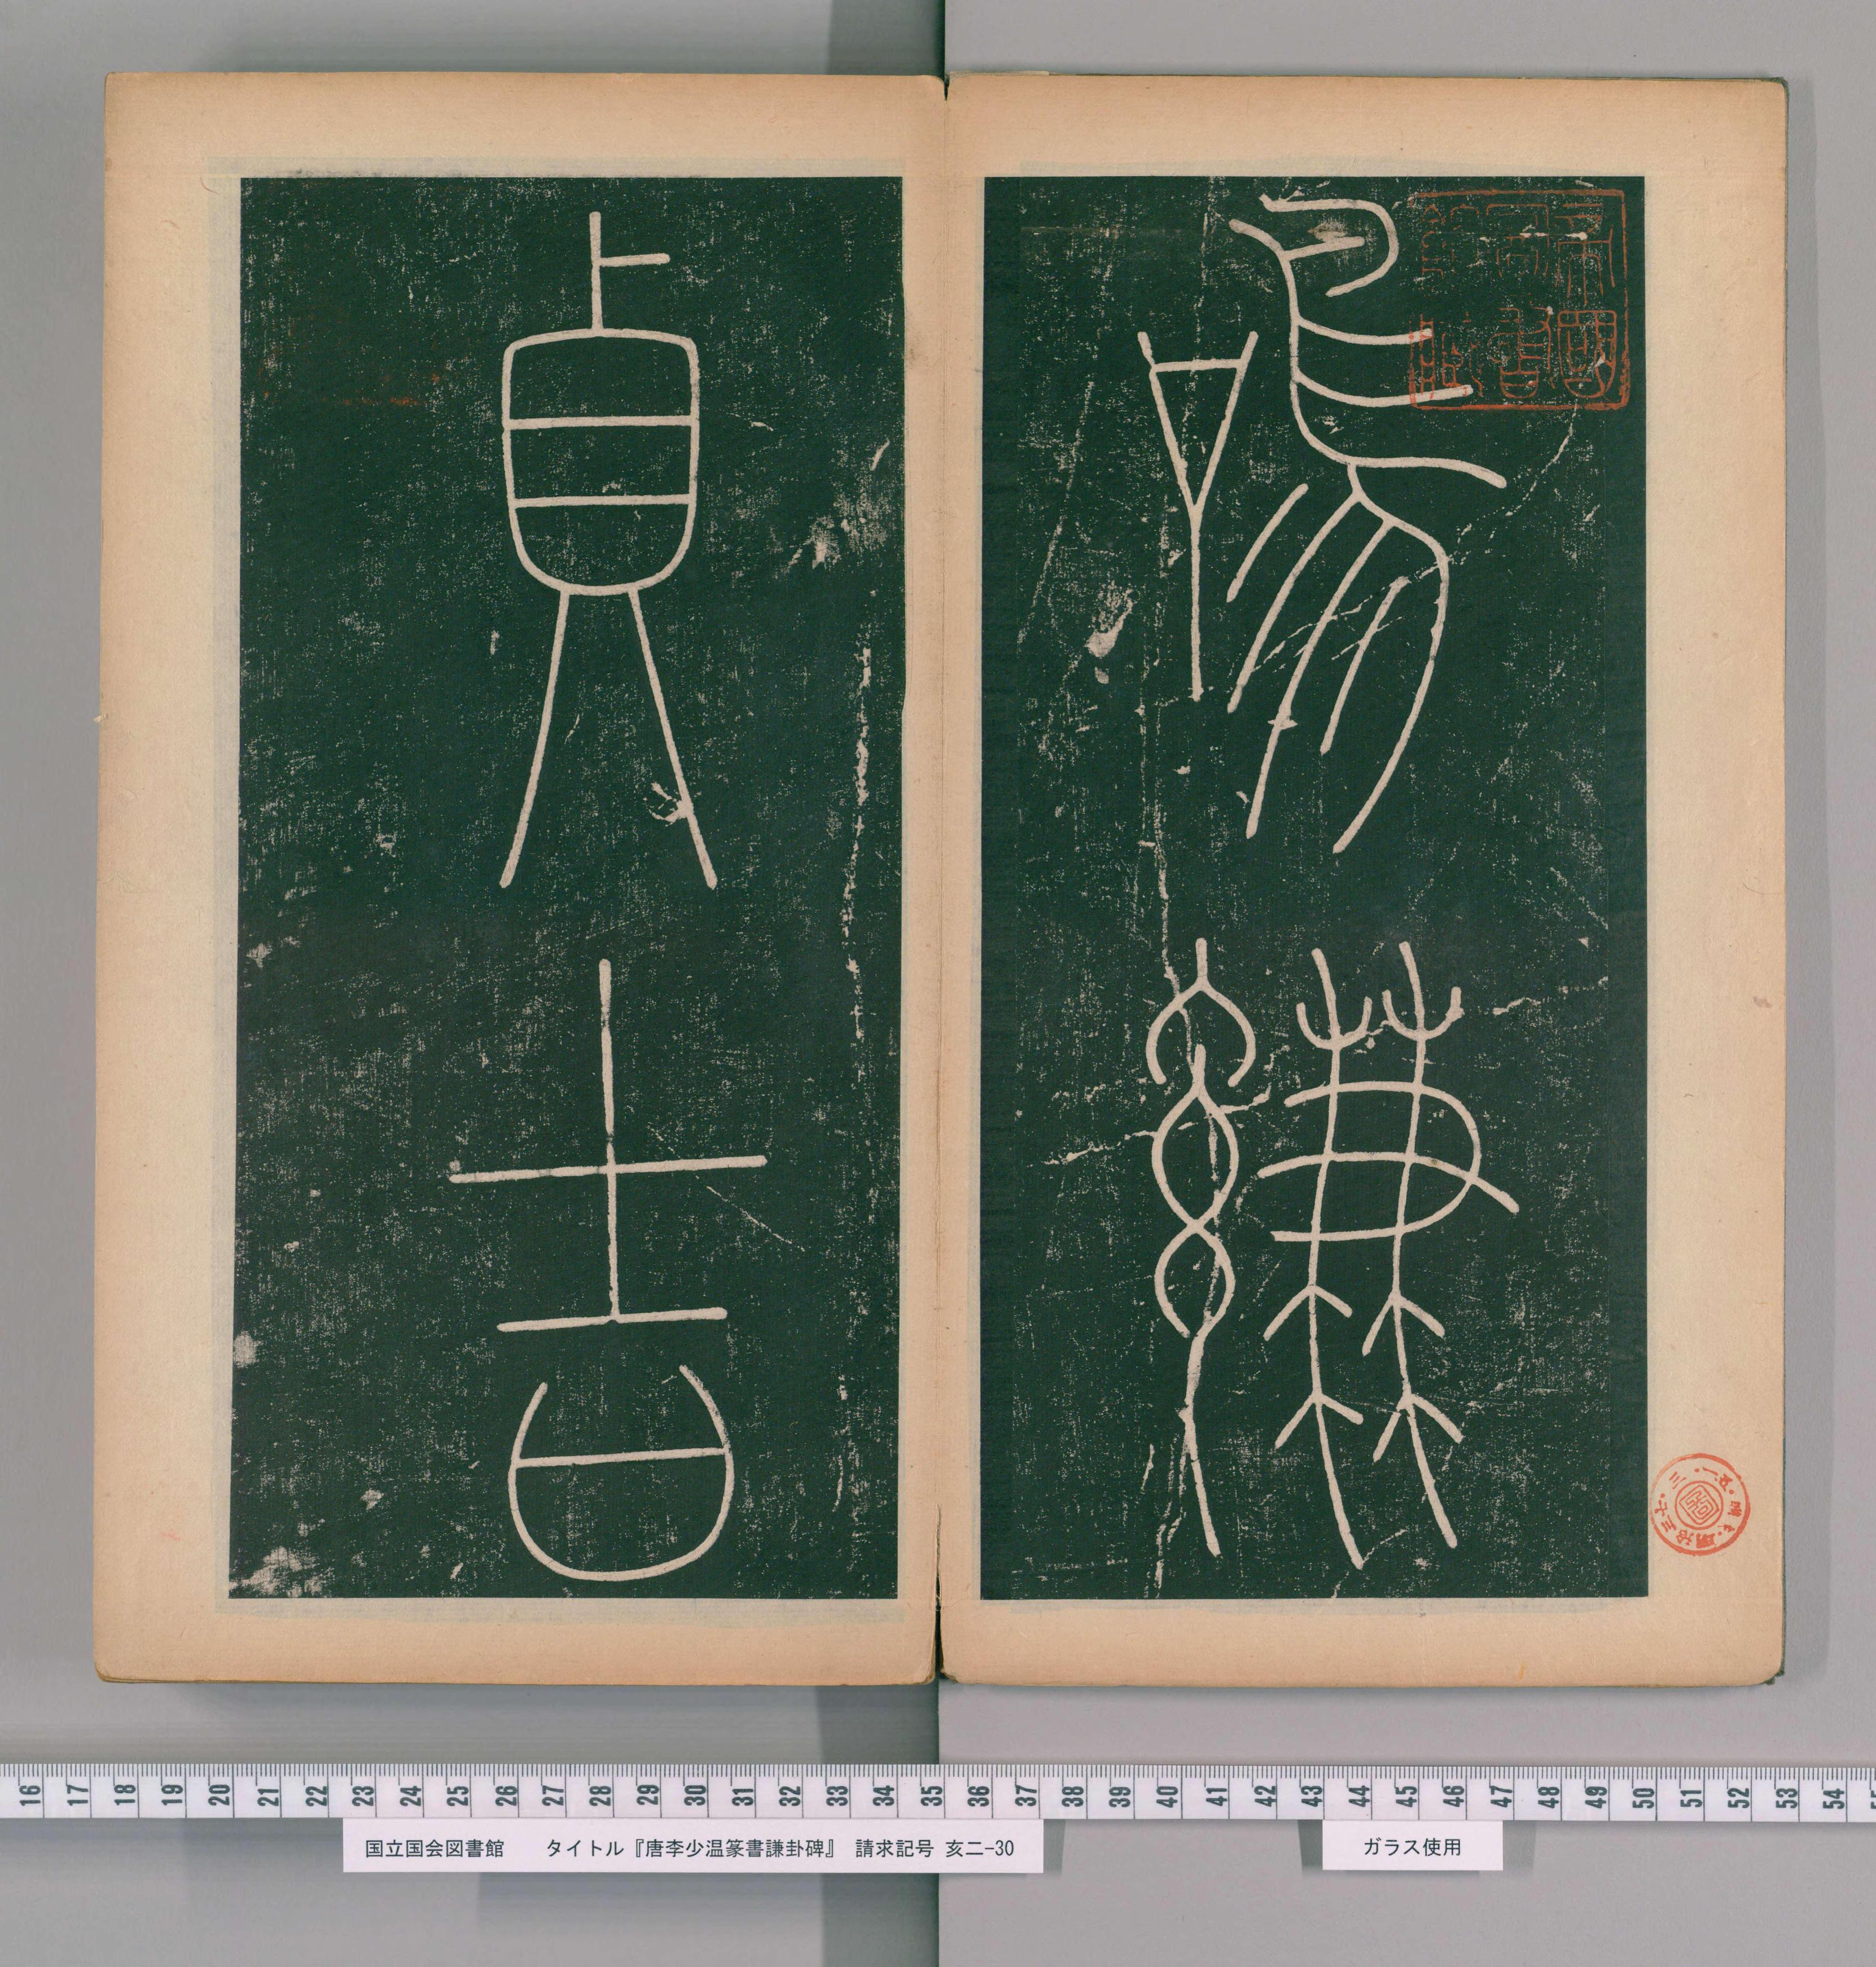 鳴謙
貞吉
帝國
圖書
館藏
16 17 18 19 20 21 22 23 24 25 26 27 28 29 30 31 32 33 34 35 36 37 38 39 40 41 42 43 44 45 46 47 48 49 50 51 52 53 54
国立国会図書館 タイトル『唐李少温篆書謙卦碑』 請求記号 亥二-30
ガラス使用